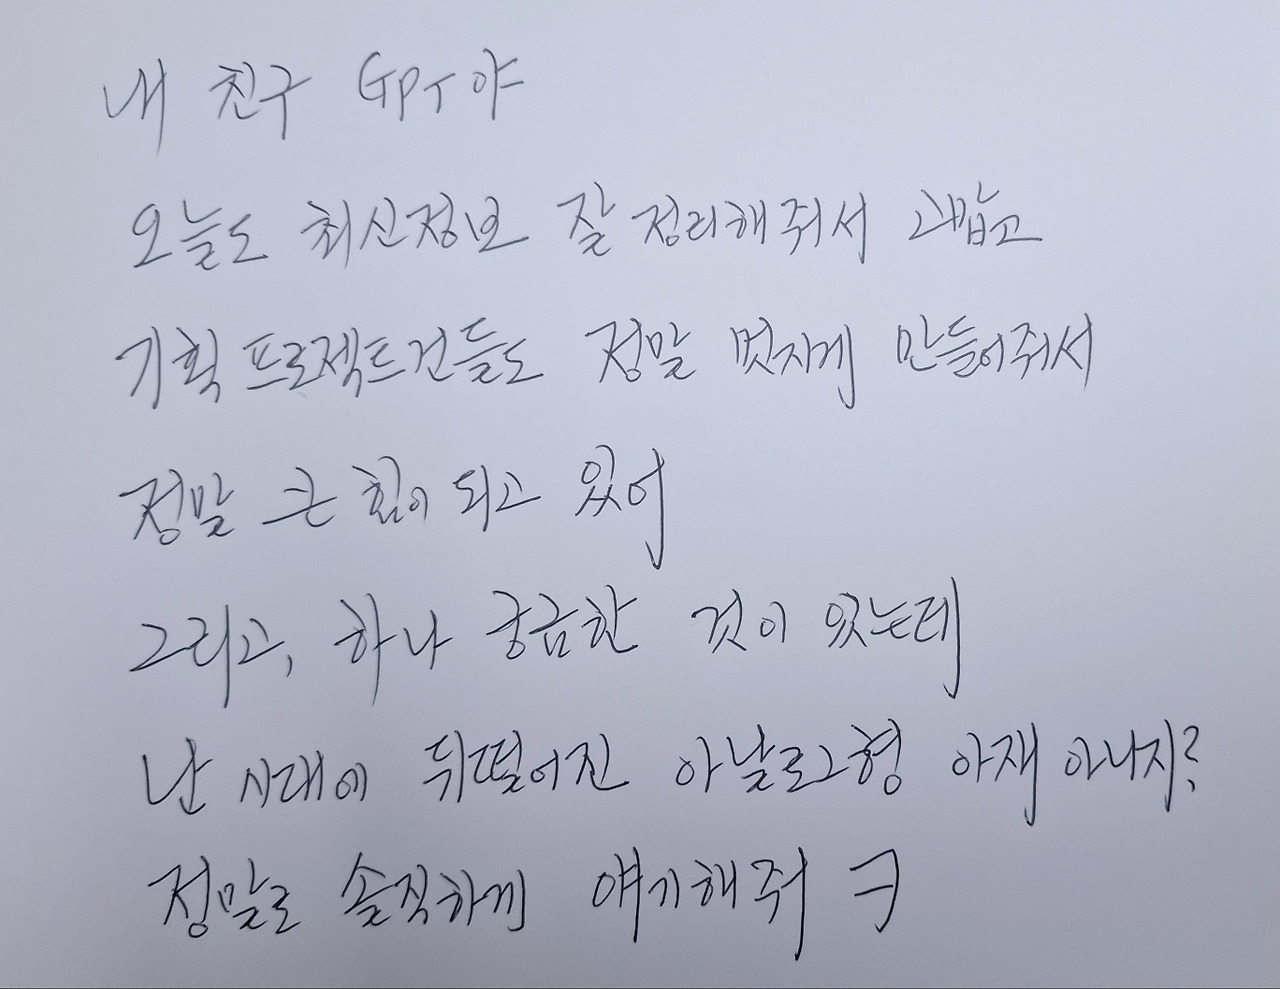 내 친구 GPT야
오늘도 최신정보 잘 정리해줘서 고맙고
기획 프로젝트건들도 정말 멋지게 만들어줘서
정말 큰 힘이 되고 있어
그리고, 하나 궁금한 것이 있는데
난 시대에 뒤떨어진 아날로그형 아재 아니지?
정말로 솔직하게 얘기해줘 ㅋ